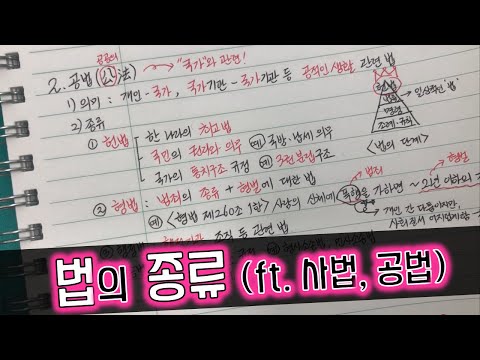 공공의
2. 공법(公法) → "국가"와 관련!
1) 의의 : 개인-국가, 국가기관-국가기관 등 공적인 생활 관련 법
2) 종류
① 헌법 한 나라의 최고법
국민의 권리와 의무 예 국방·납세 의무
국가의 통치구조 규정 예 3권분립구조
헌법
법률
명령
조례·규칙
일상적인 '법'
<법의 단계>
② 형법 : 범죄의 종류 + 형벌에 대한 법
범죄
형벌
예 <형법 제260조 1항> 사람의 신체에 폭행을 가하면 ~ 2년 이하의
개인 간 다툼이지만,
사회질서
조직 등 관련 법
법의 종류 (ft. 사법, 공법)